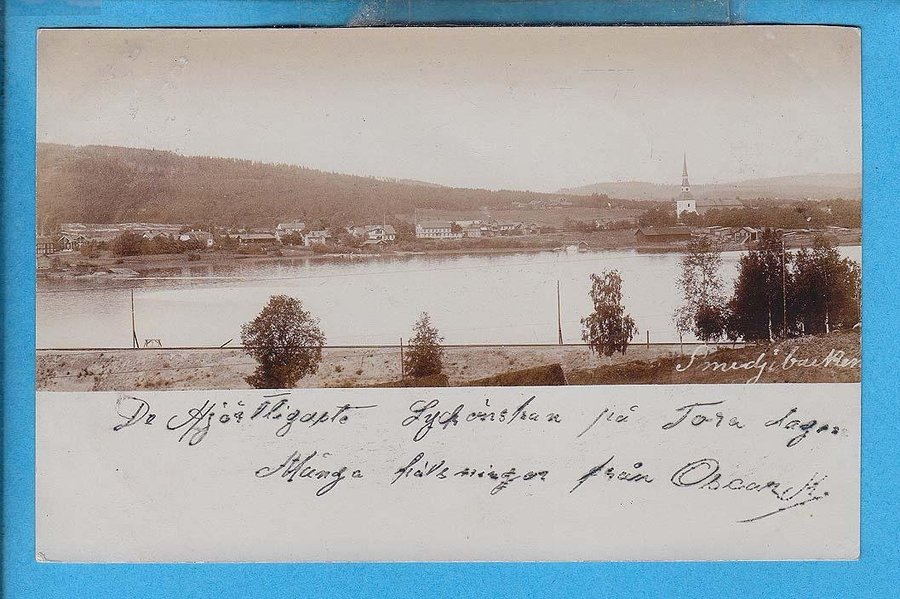 Smedjibacken
De Hjärtligaste Lyckönskan på Tora dagen
Många hälsningar från Oscar K.